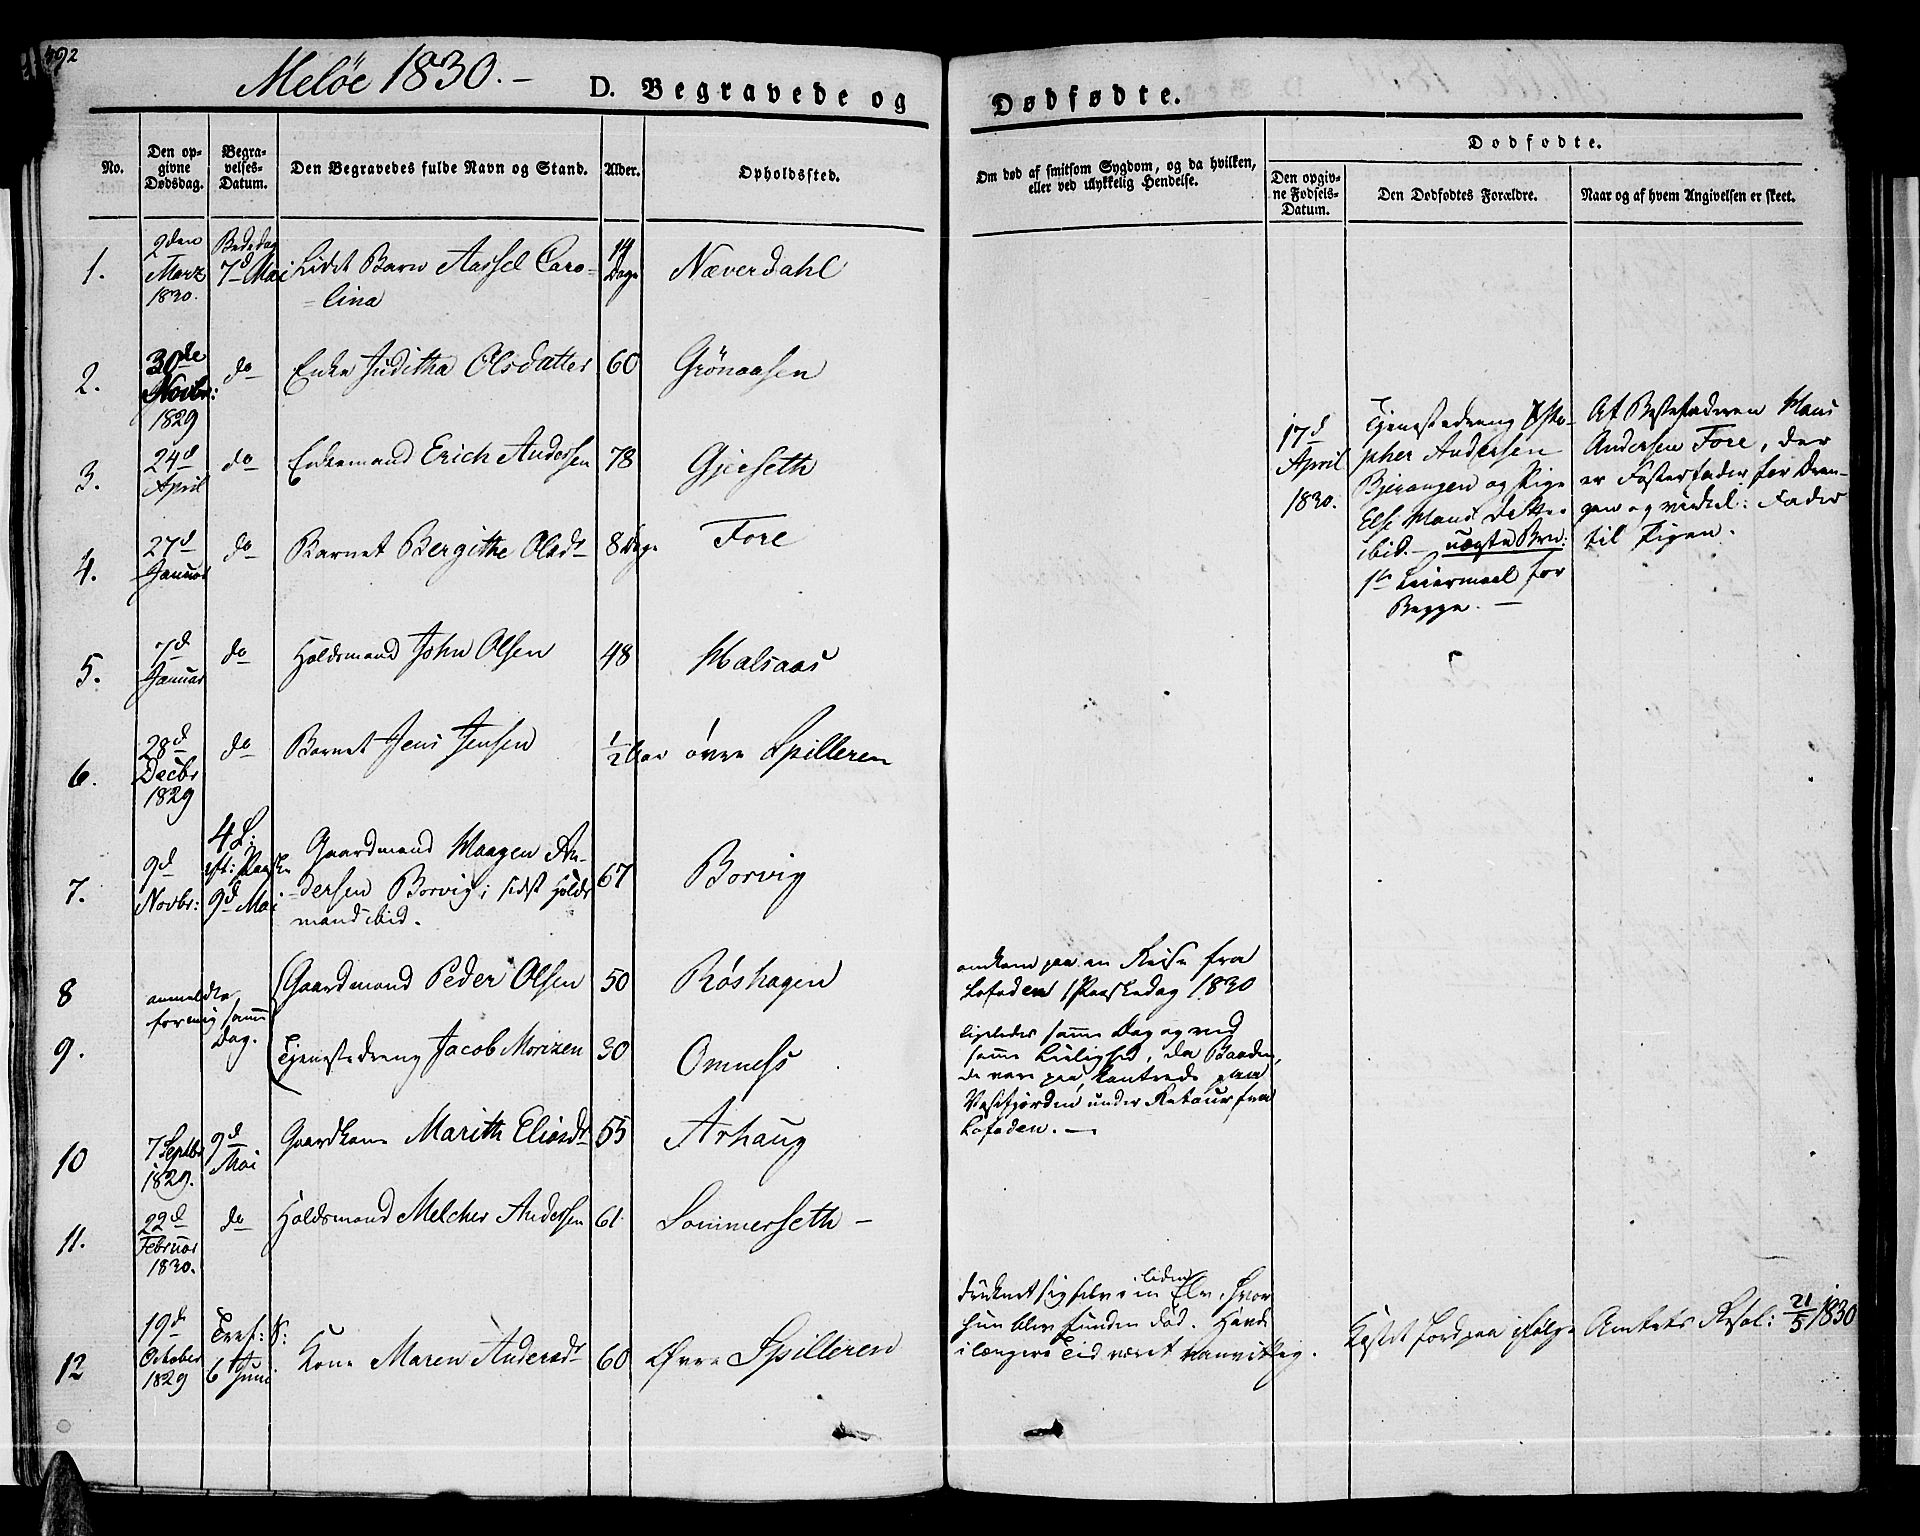 492
Meløe 1830.-
D. Begravede og Dødfødte.
No.
Den opgivne Dødsdag.
Begravelses-Datum.
Den Begravedes fulde Navn og Stand.
Alder.
Opholdssted.
Om død af smitsom Sygdom, og da hvilken,
eller ved ulykkelig Hendelse.
Dødfødte.
Den opgivne Fødsels-Datum.
Den Dødfødtes Forældre.
Naar og af hvem Angivelsen er skeet.
1. 9den Marz 1830. Bededag 7d Mai Lidet Barn Aassel Caro-
=lina 14 Dage Næverdahl
2. 30de Novbr: 1829 do Enke Juditha Olsdatter 60 Grønaasen
3. 24d April do Enkemand Erich Andersen 78 Gjerseth
17d April 1830.
Tjenestedreng Xsto-
pher Andersen
Bjerangen og Pige
Else Hans datter
ibid. - uægte Brn:
1ste Leiermaal for
Begge. -
Af Bestefaderen Hans
Andersen Fore, der
er Fosterfader for Dren-
gen og virkel: Fader
til Pigen.
4. 27d Januar do Barnet Bergithe Olsdt 8 Dage Fore
5. 7d Januar do Holdsmand John Olsen 48 Halsaas
6. 28d Decbr 1829 do Barnet Jens Jensen 1/2 Aar øvre Spilleren
7. 9d Novbr: 4 S: eft: Paaske 9d Mai Gaardmand Haagen An-
dersen Borvig; sidst Holds
mand ibid. 67 Borvig
8 anmeldte for mig samme Dag. Gaardmand Peder Olsen 50 Røshagen
omkom paa en Reise fra
Lofoden 1 Paaskedag 1830
9. Tjenestedreng Jacob Morizen 30 Omness
ligeledes samme Dag og ved
samme Leilighed, da Baaden,
de vare paa, kantrede paa
Vestfjorden under Retour fra
Lofoden. -
10 7 Septbr 1829. 9d Mai Gaardkone Marith Eliasdt 55 Arhaug
11. 22d Februar 1830. do Holdsmand Melcher Andersen 61. Sommerseth -
12 19d October 1829 Tref: S: 6 Juni Kone Maren Andersdt 60 Øvre Spilleren
druknet sig selv i en liden Elv, hvor
hun blev funden død. Havde
i længere Tid været vanvittig.
Kastet Jord paa ifølge Amtets Resol: 21/5 1830